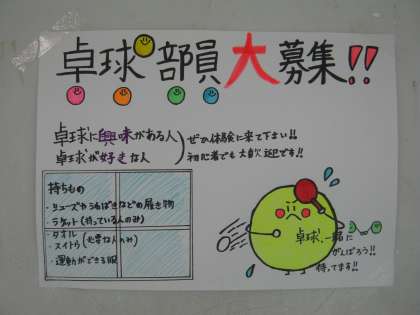 卓球部員大募集!!
卓球に興味がある人
卓球が好きな人
ぜひ体験に来て下さい!!
初心者でも大歓迎です!!
持ちもの
・シューズやうわばきなどの履き物
・ラケット(持っている人のみ)
・タオル
・スイトウ(必要な人のみ)
・運動ができる服
卓球、一緒に
がんばろう!!
待ってます!!